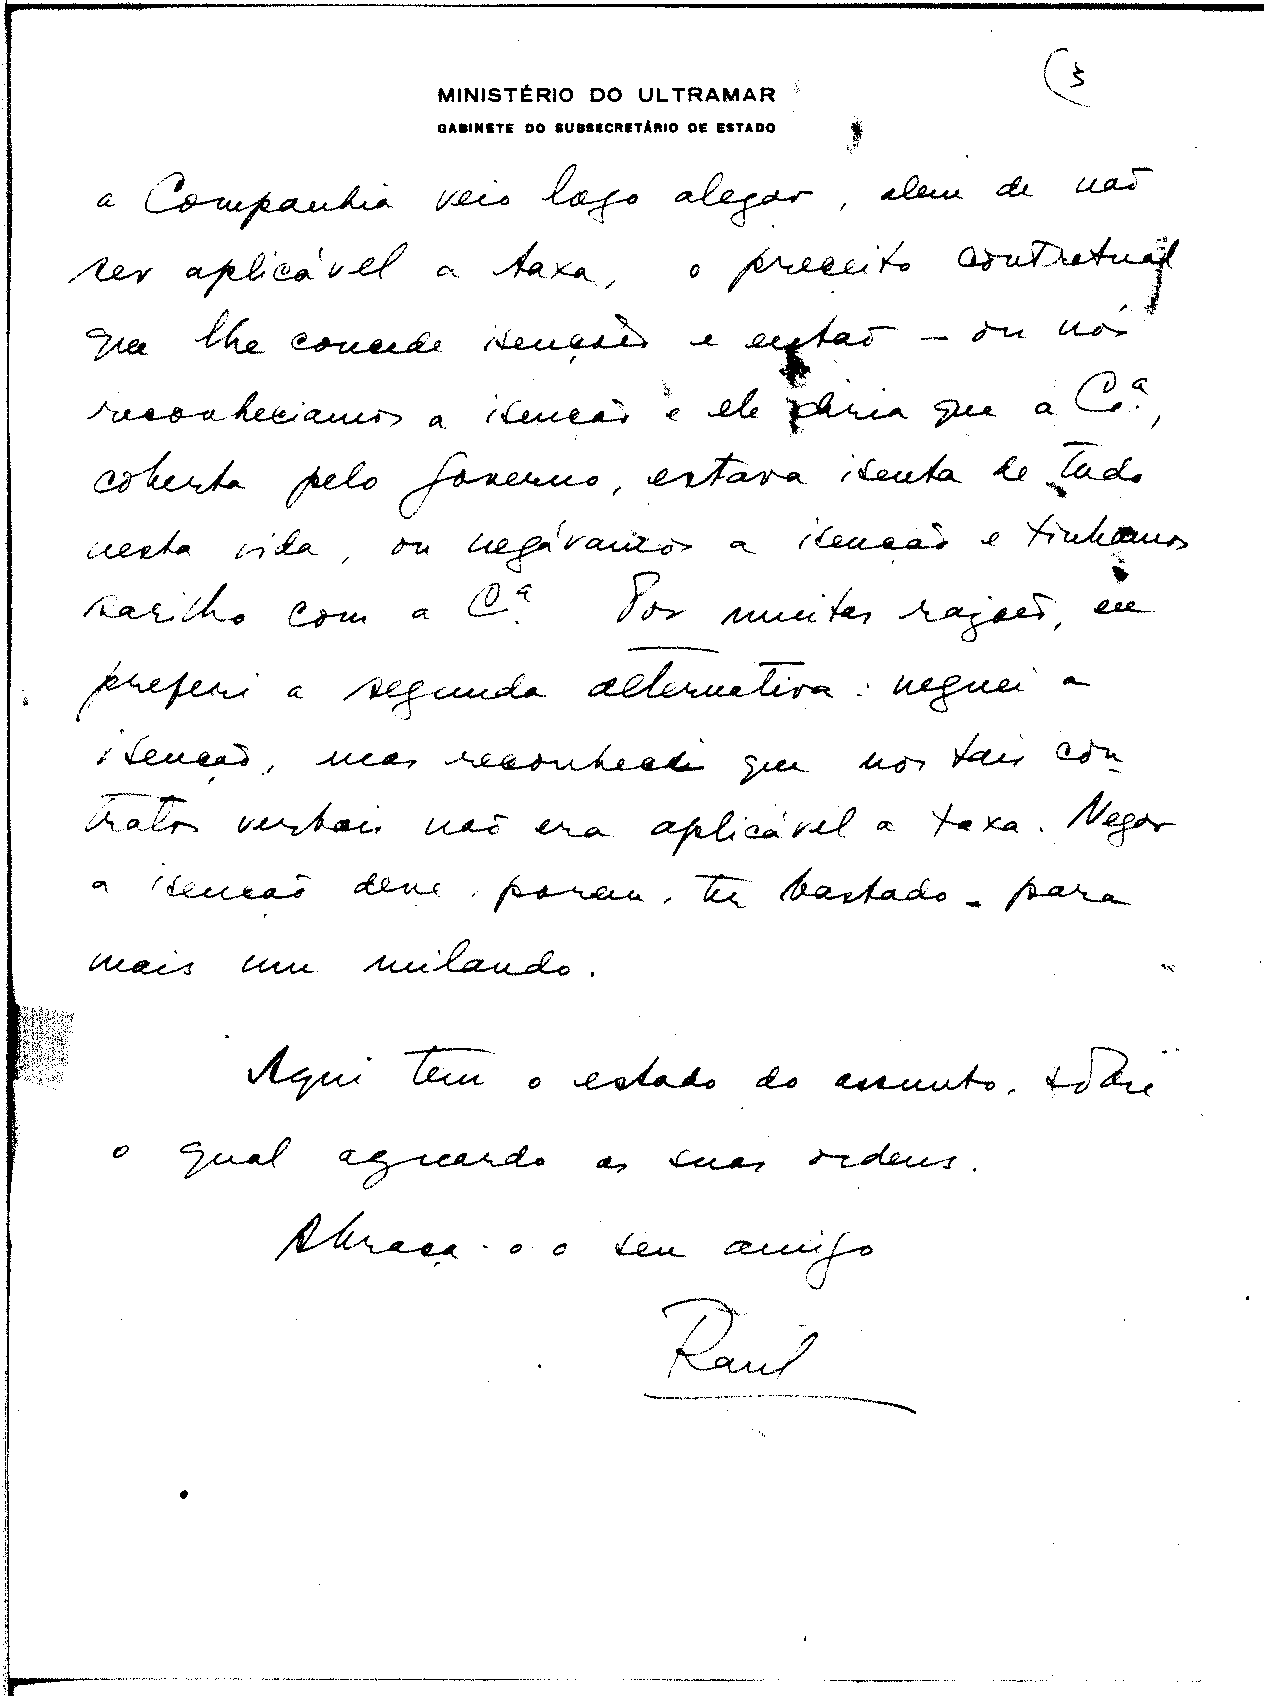 (3
MINISTÉRIO DO ULTRAMAR
GABINETE DO SUBSECRETÁRIO DE ESTADO
a Companhia veio logo alegar, alem de não
ser aplicável a taxa, o preceito contratual
que lhe concede isenções e então — ou nós
reconheciamos a isenção e ele diria que a Cª.,
coberta pelo Governo, estava isenta de tudo
nesta vida, ou negávamos a isenção e tinhamos
sarilho com a Cª. Por muitas razoes, eu
preferi a segunda alternativa: neguei a
isenção, mas reconheci que nos tais con-
tratos verbais não era aplicável a taxa. Negar
a isenção deve, porem, ter bastado - para
mais um milando.
Aqui tem o estado do assunto, sôbre
o qual aguardo as suas ordens.
Abraça-o o seu amigo
Raul